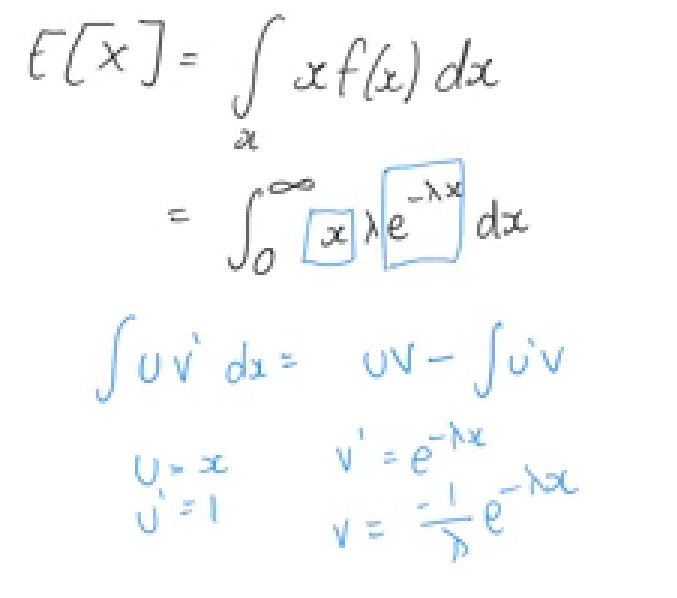 E[X] = ∫ₓ x f(x) dx
= ∫₀^∞ x λ e^{-λx} dx
∫ u v' dx = uv − ∫ u'v
u = x v' = e^{-λx}
u' = 1 v = -1/λ e^{-λx}